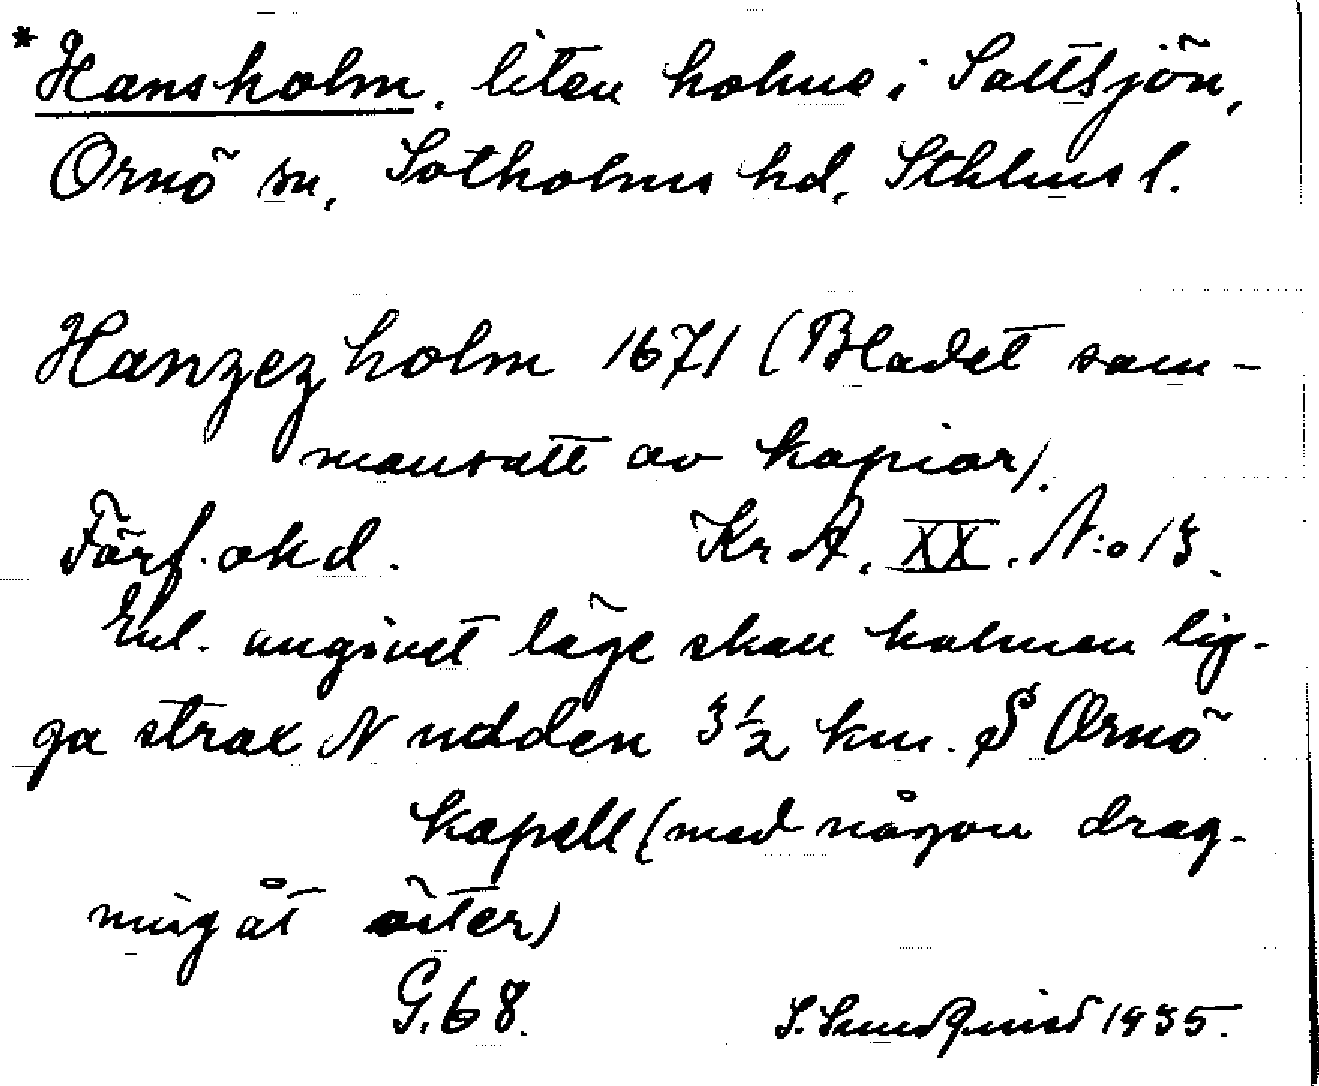 *Hansholm, liten holme i Saltsjön,
Ornö sn, Sotholms hd, Sthlms l.
Hanzezholm 1671 (Bladet sam-
mansatt av kopior).
Förf. okd. Kr A. XX. N:o 13.
Enl. angivet läge skall holmen lig-
ga strax N udden 3½ km. S Ornö
kapell (med någon drag-
ning åt öster)
G. 68. S. Sundquist 1935.